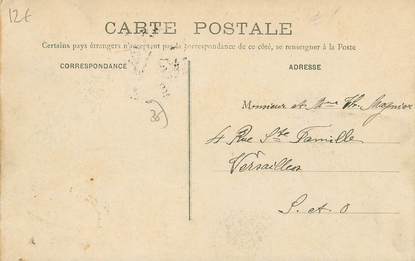 12€
CARTE POSTALE
Certains pays étrangers n'acceptent pas la correspondance de ce côté, se renseigner à la Poste
CORRESPONDANCE
ADRESSE
35
Monsieur et Mme Th. Magnier
4 Rue Ste Famille
Versailles
S. et O